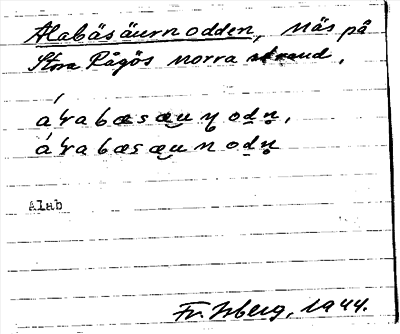 Alabäsäurnodden, Näs på
Stora Rågös norra strand.
álrabæsæu̯ɳod̥n̥,
álrabæsæu̯nod̥n̥
Alab
Fr. Isberg, 1944.